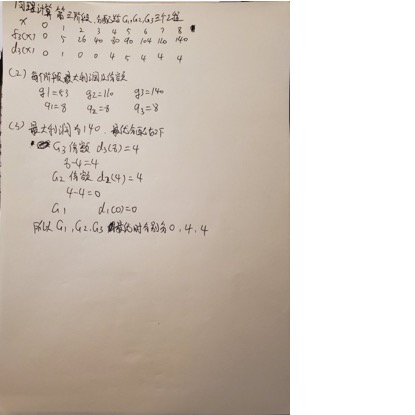 同理计算第三阶段,分配给G₁,G₂,G₃三个工程
x 0 1 2 3 4 5 6 7 8
f₃(x) 0 5 26 40 80 90 104 110 140
d₃(x) 0 1 0 0 4 5 4 4 4
(2) 每个阶段最大利润及份数
g1=53 g2=110 g3=140
q1=8 q2=8 q3=8
(3) 最大利润为140,最优分配如下
G3 份数 d₃(8)=4
8-4=4
G2 份数 d₂(4)=4
4-4=0
G1 d₁(0)=0
所以 G₁,G₂,G₃ 最优时分别为0,4,4